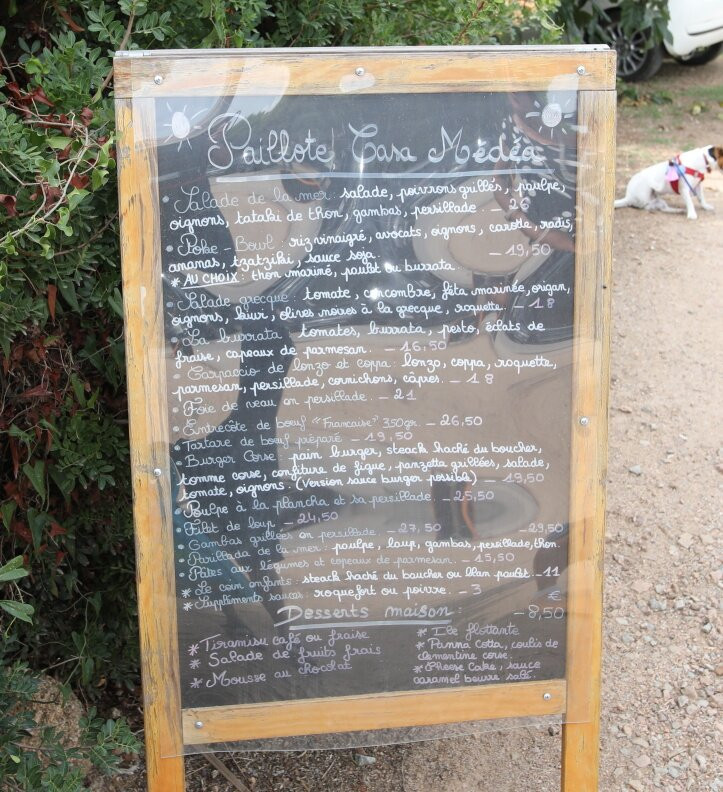 Paillote Casa Médéa
• Salade de la mer : salade, poivrons grillés, poulpe,
oignons, tataki de thon, gambas, persillade. — 26
• Poke Bowl : riz vinaigré, avocats, oignons, carotte, radis,
ananas, tzatziki, sauce soja. — 19,50
* AU CHOIX : thon mariné, poulet ou burrata.
• Salade grecque : tomate, concombre, féta marinée, origan,
oignons, kiwi, olives noires à la grecque, roquette. — 18
• La burrata : tomates, burrata, pesto, éclats de
fraise, copeaux de parmesan. — 16,50
• Carpaccio de lonzo et coppa : lonzo, coppa, roquette,
parmesan, persillade, cornichons, câpres. — 18
• Foie de veau en persillade. — 21
• Entrecôte de bœuf "Française" 350gr. — 26,50
• Tartare de bœuf préparé — 19,50
• Burger Corse : pain burger, steack haché du boucher,
tomme corse, confiture de figue, panzetta grillées, salade,
tomate, oignons. (Version sauce burger possible) 19,50
• Poulpe à la plancha et sa persillade. — 25,50
• Filet de loup. — 24,50
• Gambas grillées en persillade — 27,50 — 29,50
• Parillada de la mer : poulpe, loup, gambas, persillade, thon.
• Pâtes aux légumes et copeaux de parmesan. — 15,50
* Le coin enfants : steack haché du boucher ou blanc poulet. — 11
* Suppléments sauces : roquefort ou poivre. — 3 €
Desserts maison : — 8,50
* Tiramisu café ou fraise
* Salade de fruits frais
* Mousse au chocolat
* Ile flottante
* Panna Cotta, coulis de
clementine corse.
* Cheese Cake, sauce
caramel beurre salé.